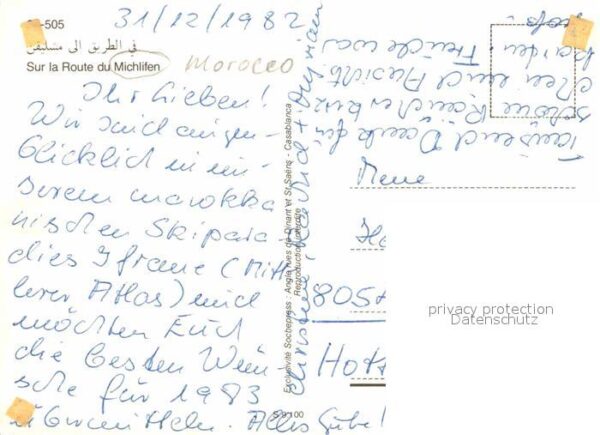 31/12/1982
-505
في الطريق الى مشليفن
Sur la Route du Michlifen
Morocco
Ihr Lieben!
Wir sind augen-
blicklich in un-
serem marokka
nischen Skipara-
dies Ifrane (Mitt
lerer Atlas) und
möchten Euch
die besten Wün-
sche für 1983
übermitteln. Alles Gute!
Exclusivité Sochepress - Angle rues de Dinant et St Saëns - Casablanca
Reproduction interdite
S 9100
Tausend Dank für
schöne Räucherkerz
chen und Ansicht
karten. Freude war
groß.
805
Hot
privacy protection
Datenschutz